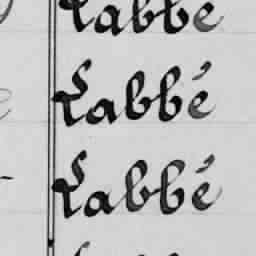 Labbé
Labbé
Labbé